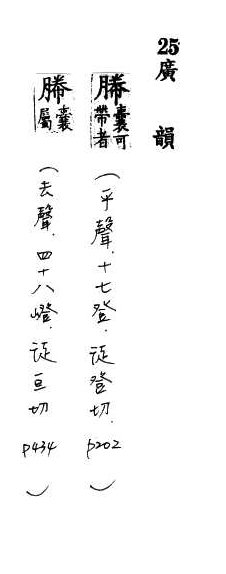 25廣韻
幐囊可帶者（平聲．十七登．徒登切．p202）
幐囊屬（去聲．四十八嶝．徒亘切 p434）